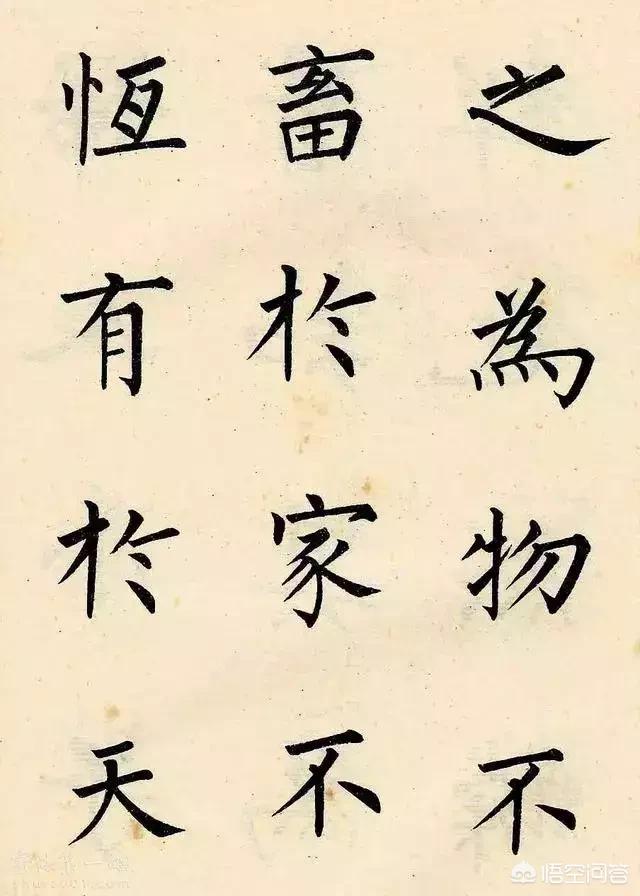 之為物不
畜於家不
恆有於天
悟空问答